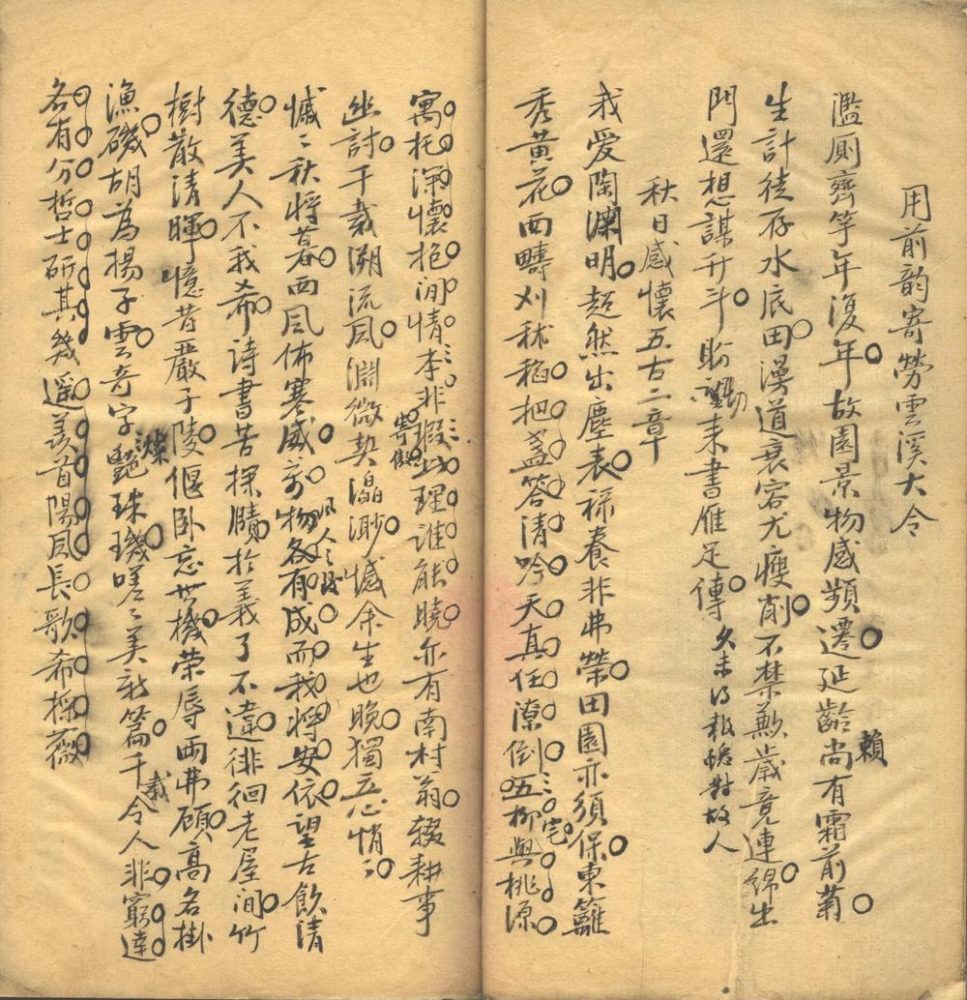 用前韵寄勞雲溪大令
濫厠齊竽年復年故園景物感頻遷延齡尚有霜前菊
賴
生計徒存水底田漫道衰容尤瘦削不禁歉歲竟連綿出
門還想謀升斗盼 来書雁足傳久未得報 對故人
秋日感懷五古二章
我爱陶淵明超然出塵表祿養非弗榮田園亦須保東籬
秀黄花西疇刈秫稻把盞答清吟天真任潦倒五柳與桃源
宅
寓托深懷抱閒情李非 理誰能曉亦有南村翁辍耕事
寄傲
幽討千載溯流風淵微契瀛渺憾余生也晚獨立心悄〻
慽〻秋將暮西風佈寒威奇物各有成而我将安依望古飲清
德美人不我希詩書苦探賾於義了不違徘徊老屋间竹
樹散清暉憶昔嚴子陵偃卧忘世機荣辱両弗顧高名掛
漁磯胡為揚子雲奇字艷珠璣嗟〻美新篇千令人非窮達
燦
載
各有分哲士研其幾遥羡首陽風長歌希採薇